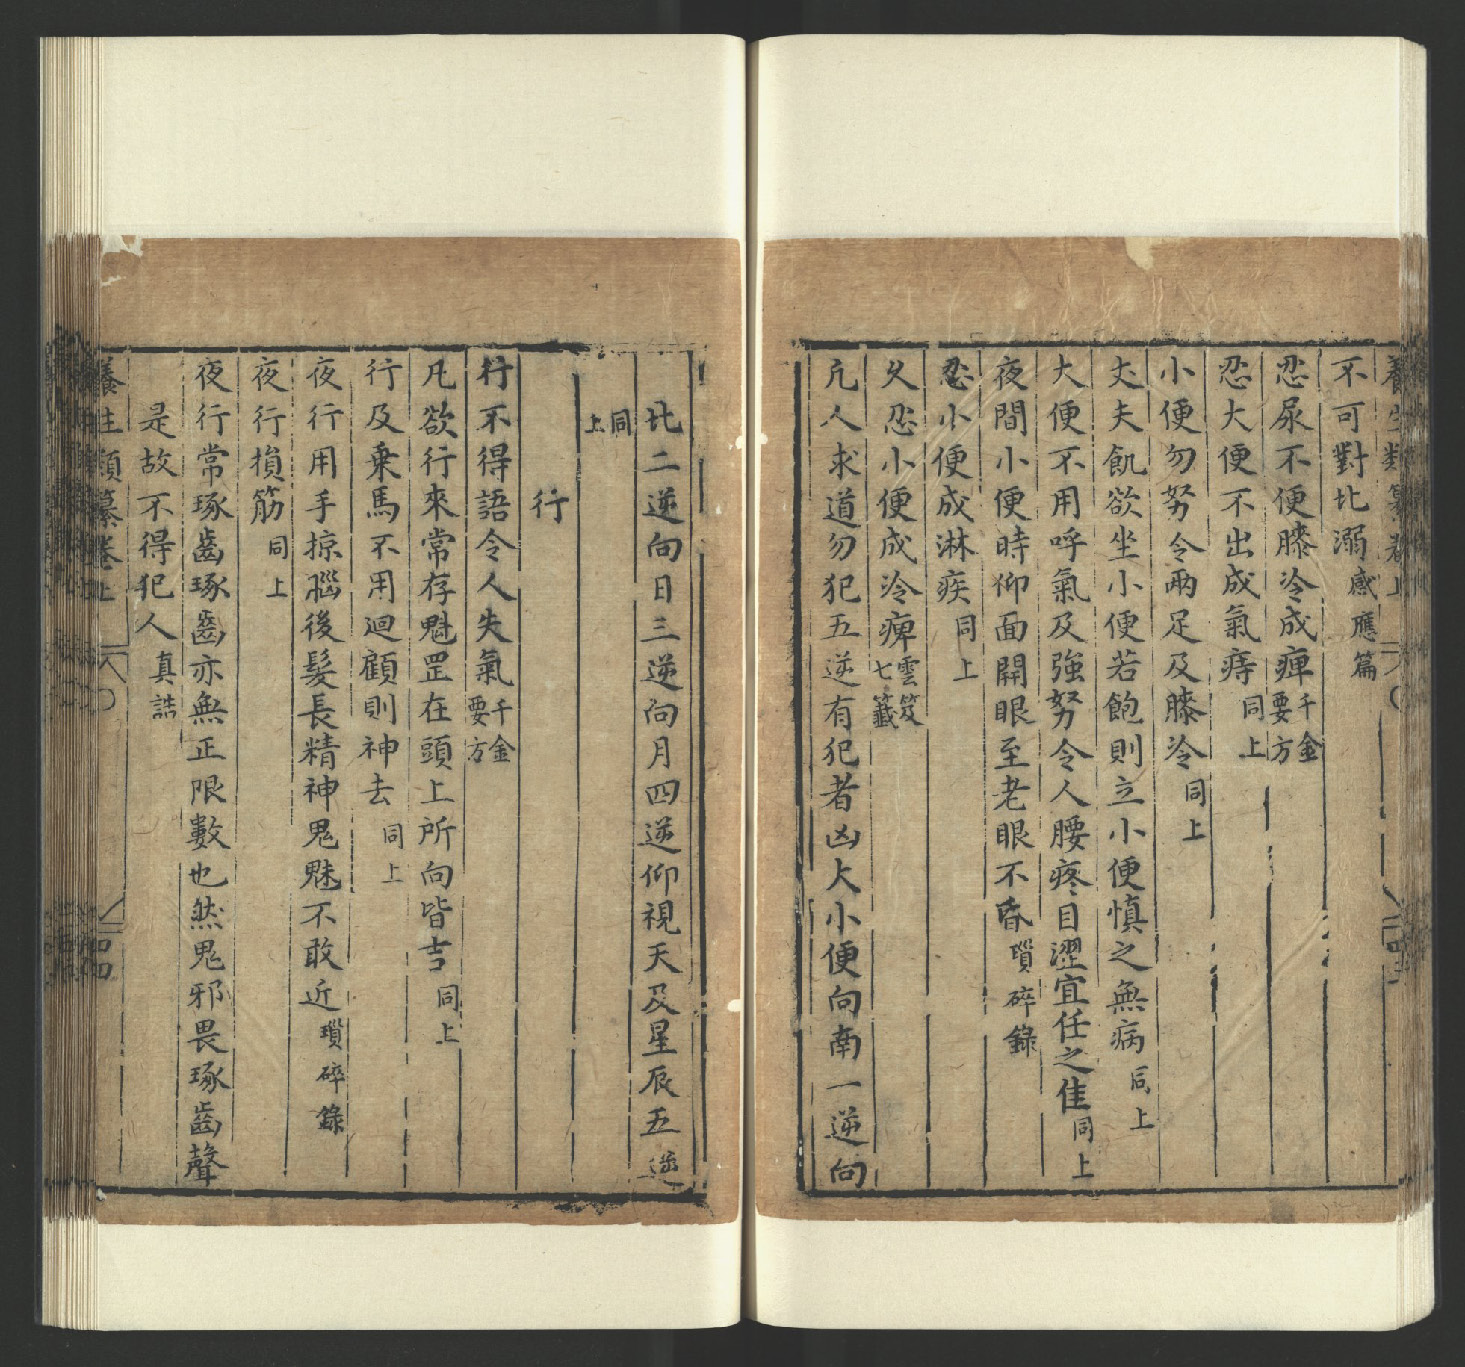 養生類纂卷上
不可對北溺感應篇
忍尿不便膝冷成痺千金要方
忍大便不出成氣痔同上
小便勿努令兩足及膝冷同上
丈夫飢欲坐小便若飽則立小便慎之無病同上
大便不用呼氣及強努令人腰疼目澀宜任之佳同上
夜間小便時仰面開眼至老眼不昏瑣碎錄
忍小便成淋疾同上
久忍小便成冷痺雲笈七籤
凡人求道勿犯五逆有犯者凶大小便向南一逆向
北二逆向日三逆向月四逆仰視天及星辰五逆
同上
行
行不得語令人失氣千金要方
凡欲行來常存魁罡在頭上所向皆吉同上
行及乗馬不用迴顧則神去同上
夜行用手掠腦後髮長精神鬼魅不敢近瑣碎錄
夜行損筋同上
夜行常琢齒琢齒亦無正限數也然鬼邪畏琢齒聲
是故不得犯人真誥
養生類纂卷上